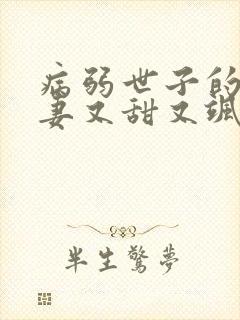 病弱世子的
妻又甜又飒
半生惊梦